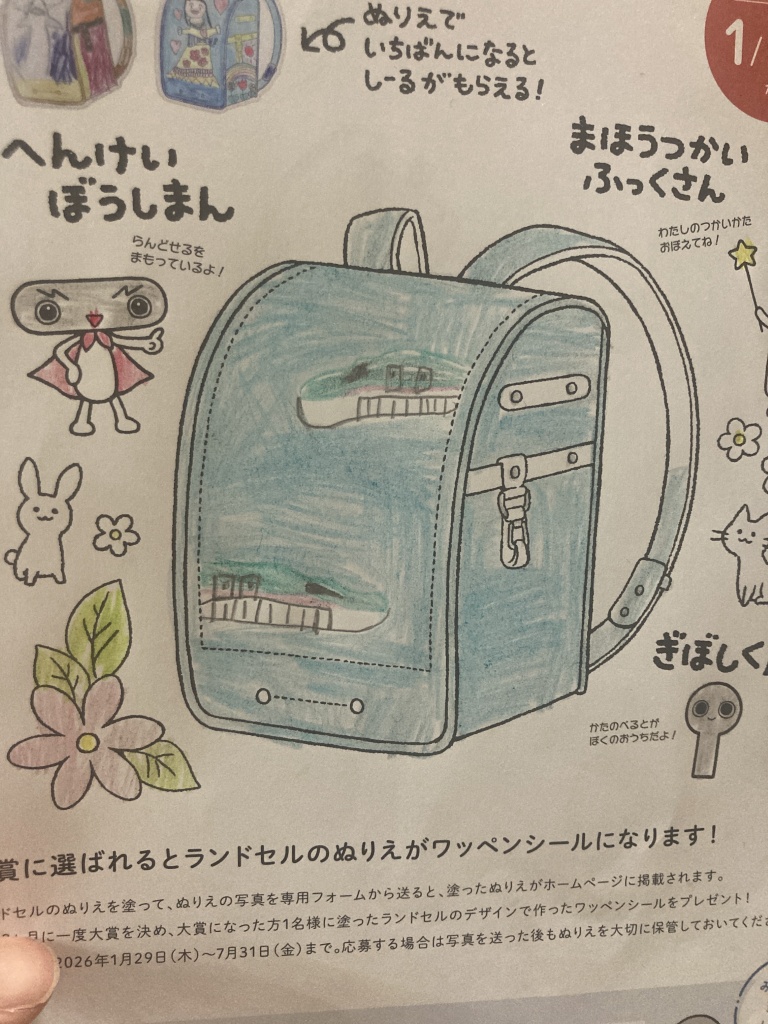 ぬりえで
いちばんになると
しーるがもらえる!
1/
へんけい
ぼうしまん
らんどせるを
まもっているよ!
まほうつかい
ふっくさん
わたしのつかいかた
おぼえてね!
ぎぼしく
かたのべるとが
ぼくのおうちだよ!
賞に選ばれるとランドセルのぬりえがワッペンシールになります!
ドセルのぬりえを塗って、ぬりえの写真を専用フォームから送ると、塗ったぬりえがホームページに掲載されます。
月に一度大賞を決め、大賞になった方1名様に塗ったランドセルのデザインで作ったワッペンシールをプレゼント!
2026年1月29日(木)～7月31日(金)まで。応募する場合は写真を送った後もぬりえを大切に保管しておいてくださ